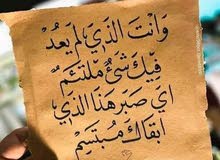 وَانْتَ الذَي لَمْ يَعُدْ
فِيكَ شَيْءٌ مُلْتَئِمٌ
اي صَبرٍ هَنَا الَذي
ابقَاكَ مُبتَسِمْ